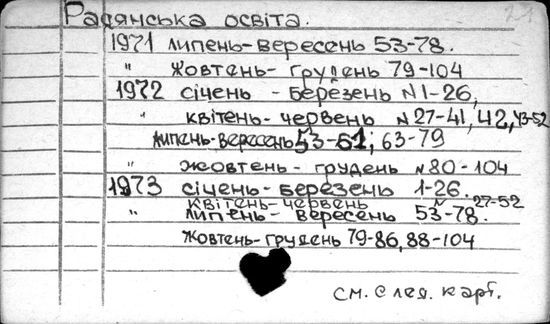 Радянська освіта.
1971 липень-вересень 53-78.
" жовтень-грудень 79-104
1972 січень - березень N1-26,
" квітень-червень N27-41, 42, 43-52
липень-вересень 53-61; 63-79
" жовтень-грудень N80-104
1973 січень-березень 1-26.
квітень-червень 27-52
" липень-вересень 53-78.
жовтень-грудень 79-86, 88-104
см. след. карт.